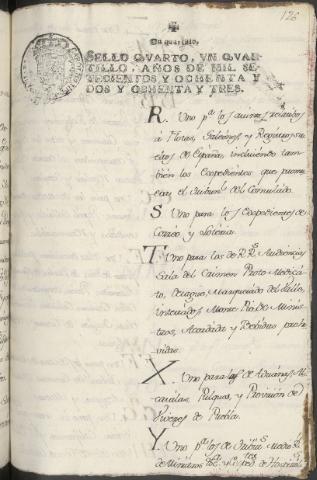 126
Un quartillo.
SELLO QVARTO, VN QVAR-
TILLO, AÑOS DE MIL SE-
TECIENTOS Y OCHENTA Y
DOS Y OCHENTA Y TRES.
R. Uno pª. los asuntos
á Flotas, Galeones, y Registros
de España, incluiendo tam-
bien los Expedientes que promu-
eva el del Consulado.
S Uno para los Expedientes de
Correo y Loteria.
T Uno para los de Rˢ. Audiencias
Sala del Crimen Proto Medicato,
Desague, Marquesado del Valle,
Intestados, Monte Pio de Minis-
tros, Acordada y Bebidas prohi-
vidas.
X. Uno para los de Aduanas, Al-
cavalas, Pulques, y Provision de
Viveres de Puebla.
Y. Uno pª. los de
de Ministros